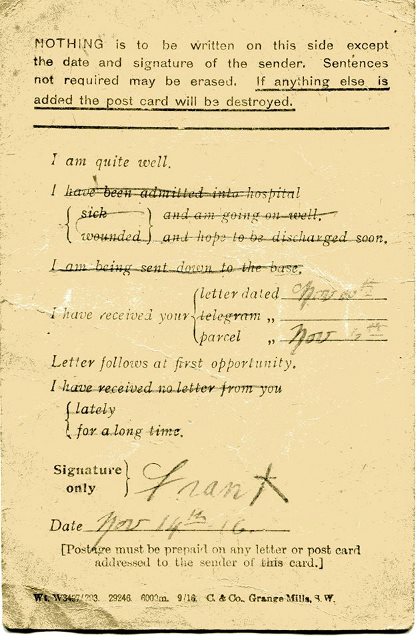 NOTHING is to be written on this side except
the date and signature of the sender. Sentences
not required may be erased. If anything else is
added the post card will be destroyed.
I am quite well.
I have been admitted into hospital
sick and am going on well.
wounded and hope to be discharged soon.
I am being sent down to the base.
letter dated Nov
I have received your telegram „
parcel „ Nov
Letter follows at first opportunity.
I have received no letter from you
lately
for a long time.
Signature
only
Frank
Date Nov 14th 16.
[Postage must be prepaid on any letter or post card
addressed to the sender of this card.]
Wt. 29246. 6000m. 9/16. C. & Co., Grange Mills, S.W.